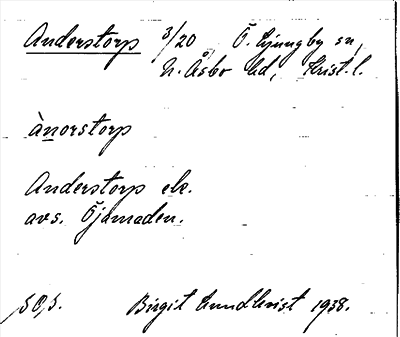 Anderstorp 3/20 Ö. Ljungby sn,
N. Åsbo hd, Krist. l.
ànorstorp
Anderstorp ek.
avs.
Birgit Lundkvist 1938.